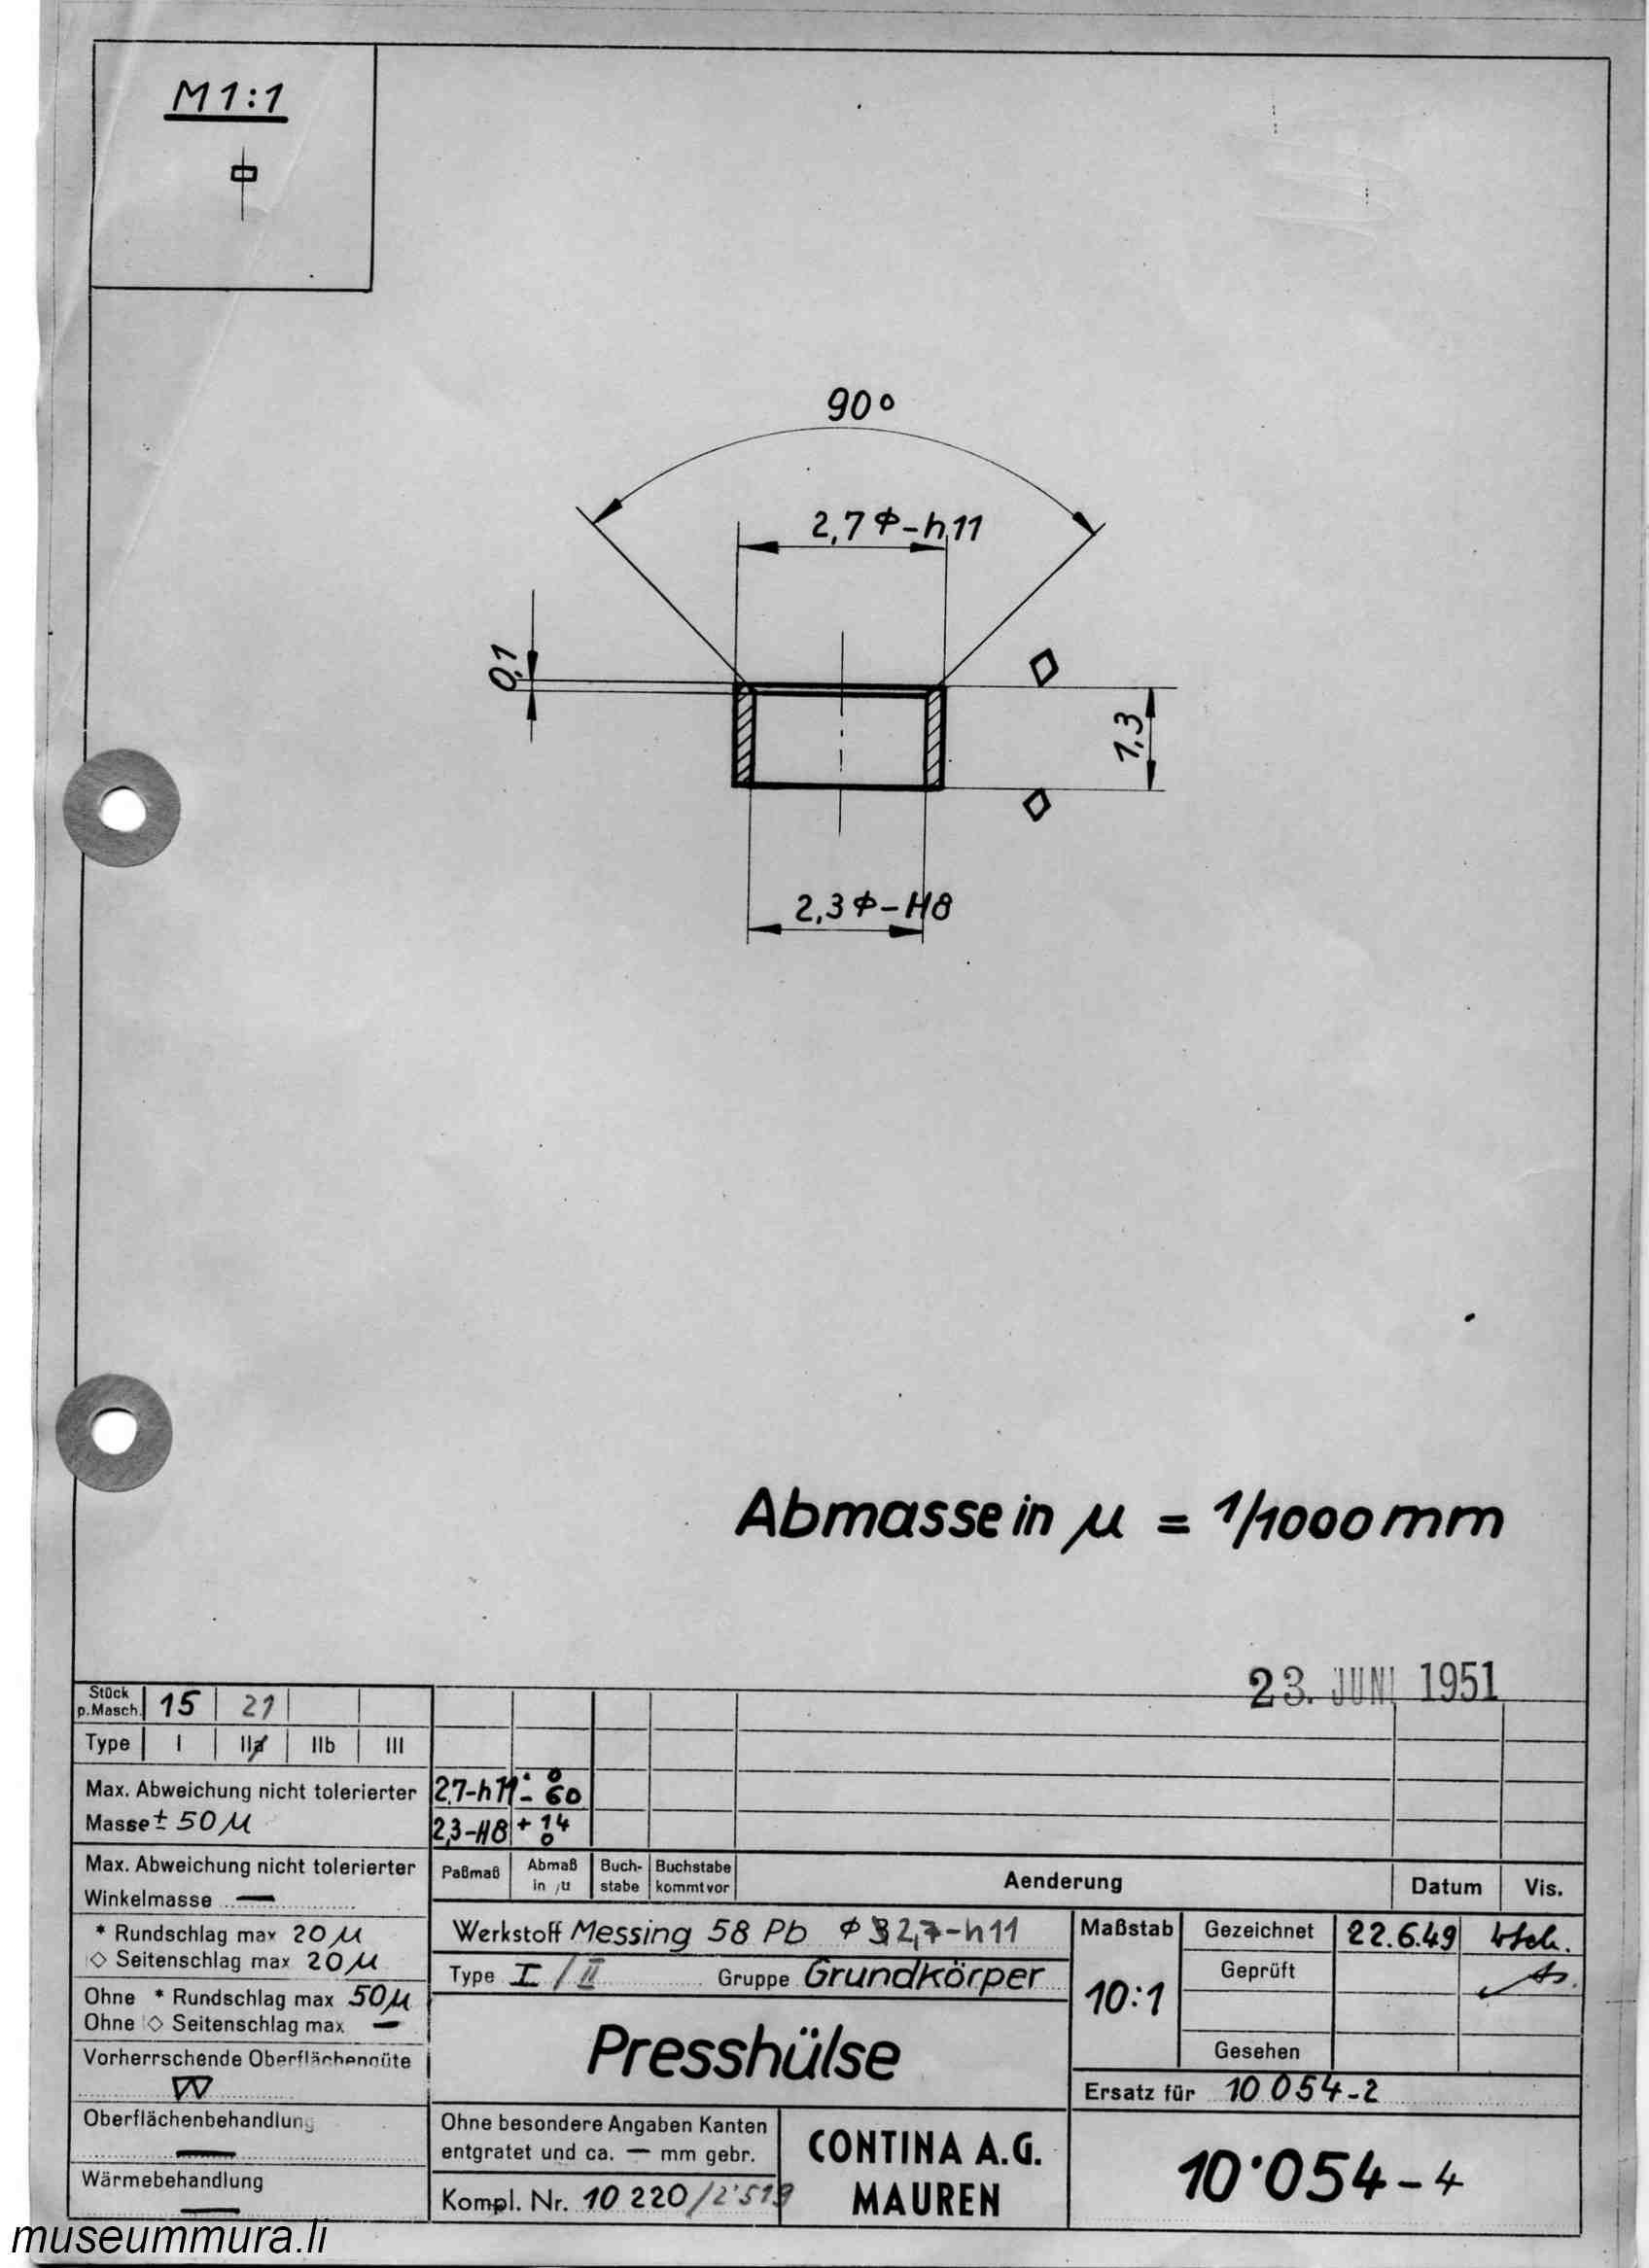 M 1:1
90°
2,7 ϕ-h11
0,1
1,3
2,3 ϕ-H8
Abmasse in µ = 1/1000 mm
23. JUNI 1951
Stück p. Masch. 15 21
Type I IIa IIb III
Max. Abweichung nicht tolerierter
Masse ± 50 µ
Max. Abweichung nicht tolerierter
Winkelmasse —
* Rundschlag max 20 µ
◇ Seitenschlag max 20 µ
Ohne * Rundschlag max 50 µ
Ohne ◇ Seitenschlag max —
Vorherrschende Oberflächengüte
Oberflächenbehandlung
—
Wärmebehandlung
—
2,7-h11 - 0 60
2,3-H8 + 14 0
Paßmaß Abmaß in µ Buchstabe Buchstabe kommt vor Aenderung Datum Vis.
Werkstoff Messing 58 Pb ϕ 2,7-h11
Type I / II Gruppe Grundkörper
Presshülse
Ohne besondere Angaben Kanten
entgratet und ca. — mm gebr.
Kompl. Nr. 10 220/2'519
CONTINA A.G.
MAUREN
Maßstab
10:1
Gezeichnet 22.6.49
Geprüft
Gesehen
Ersatz für 10 054-2
10'054-4
museummura.li